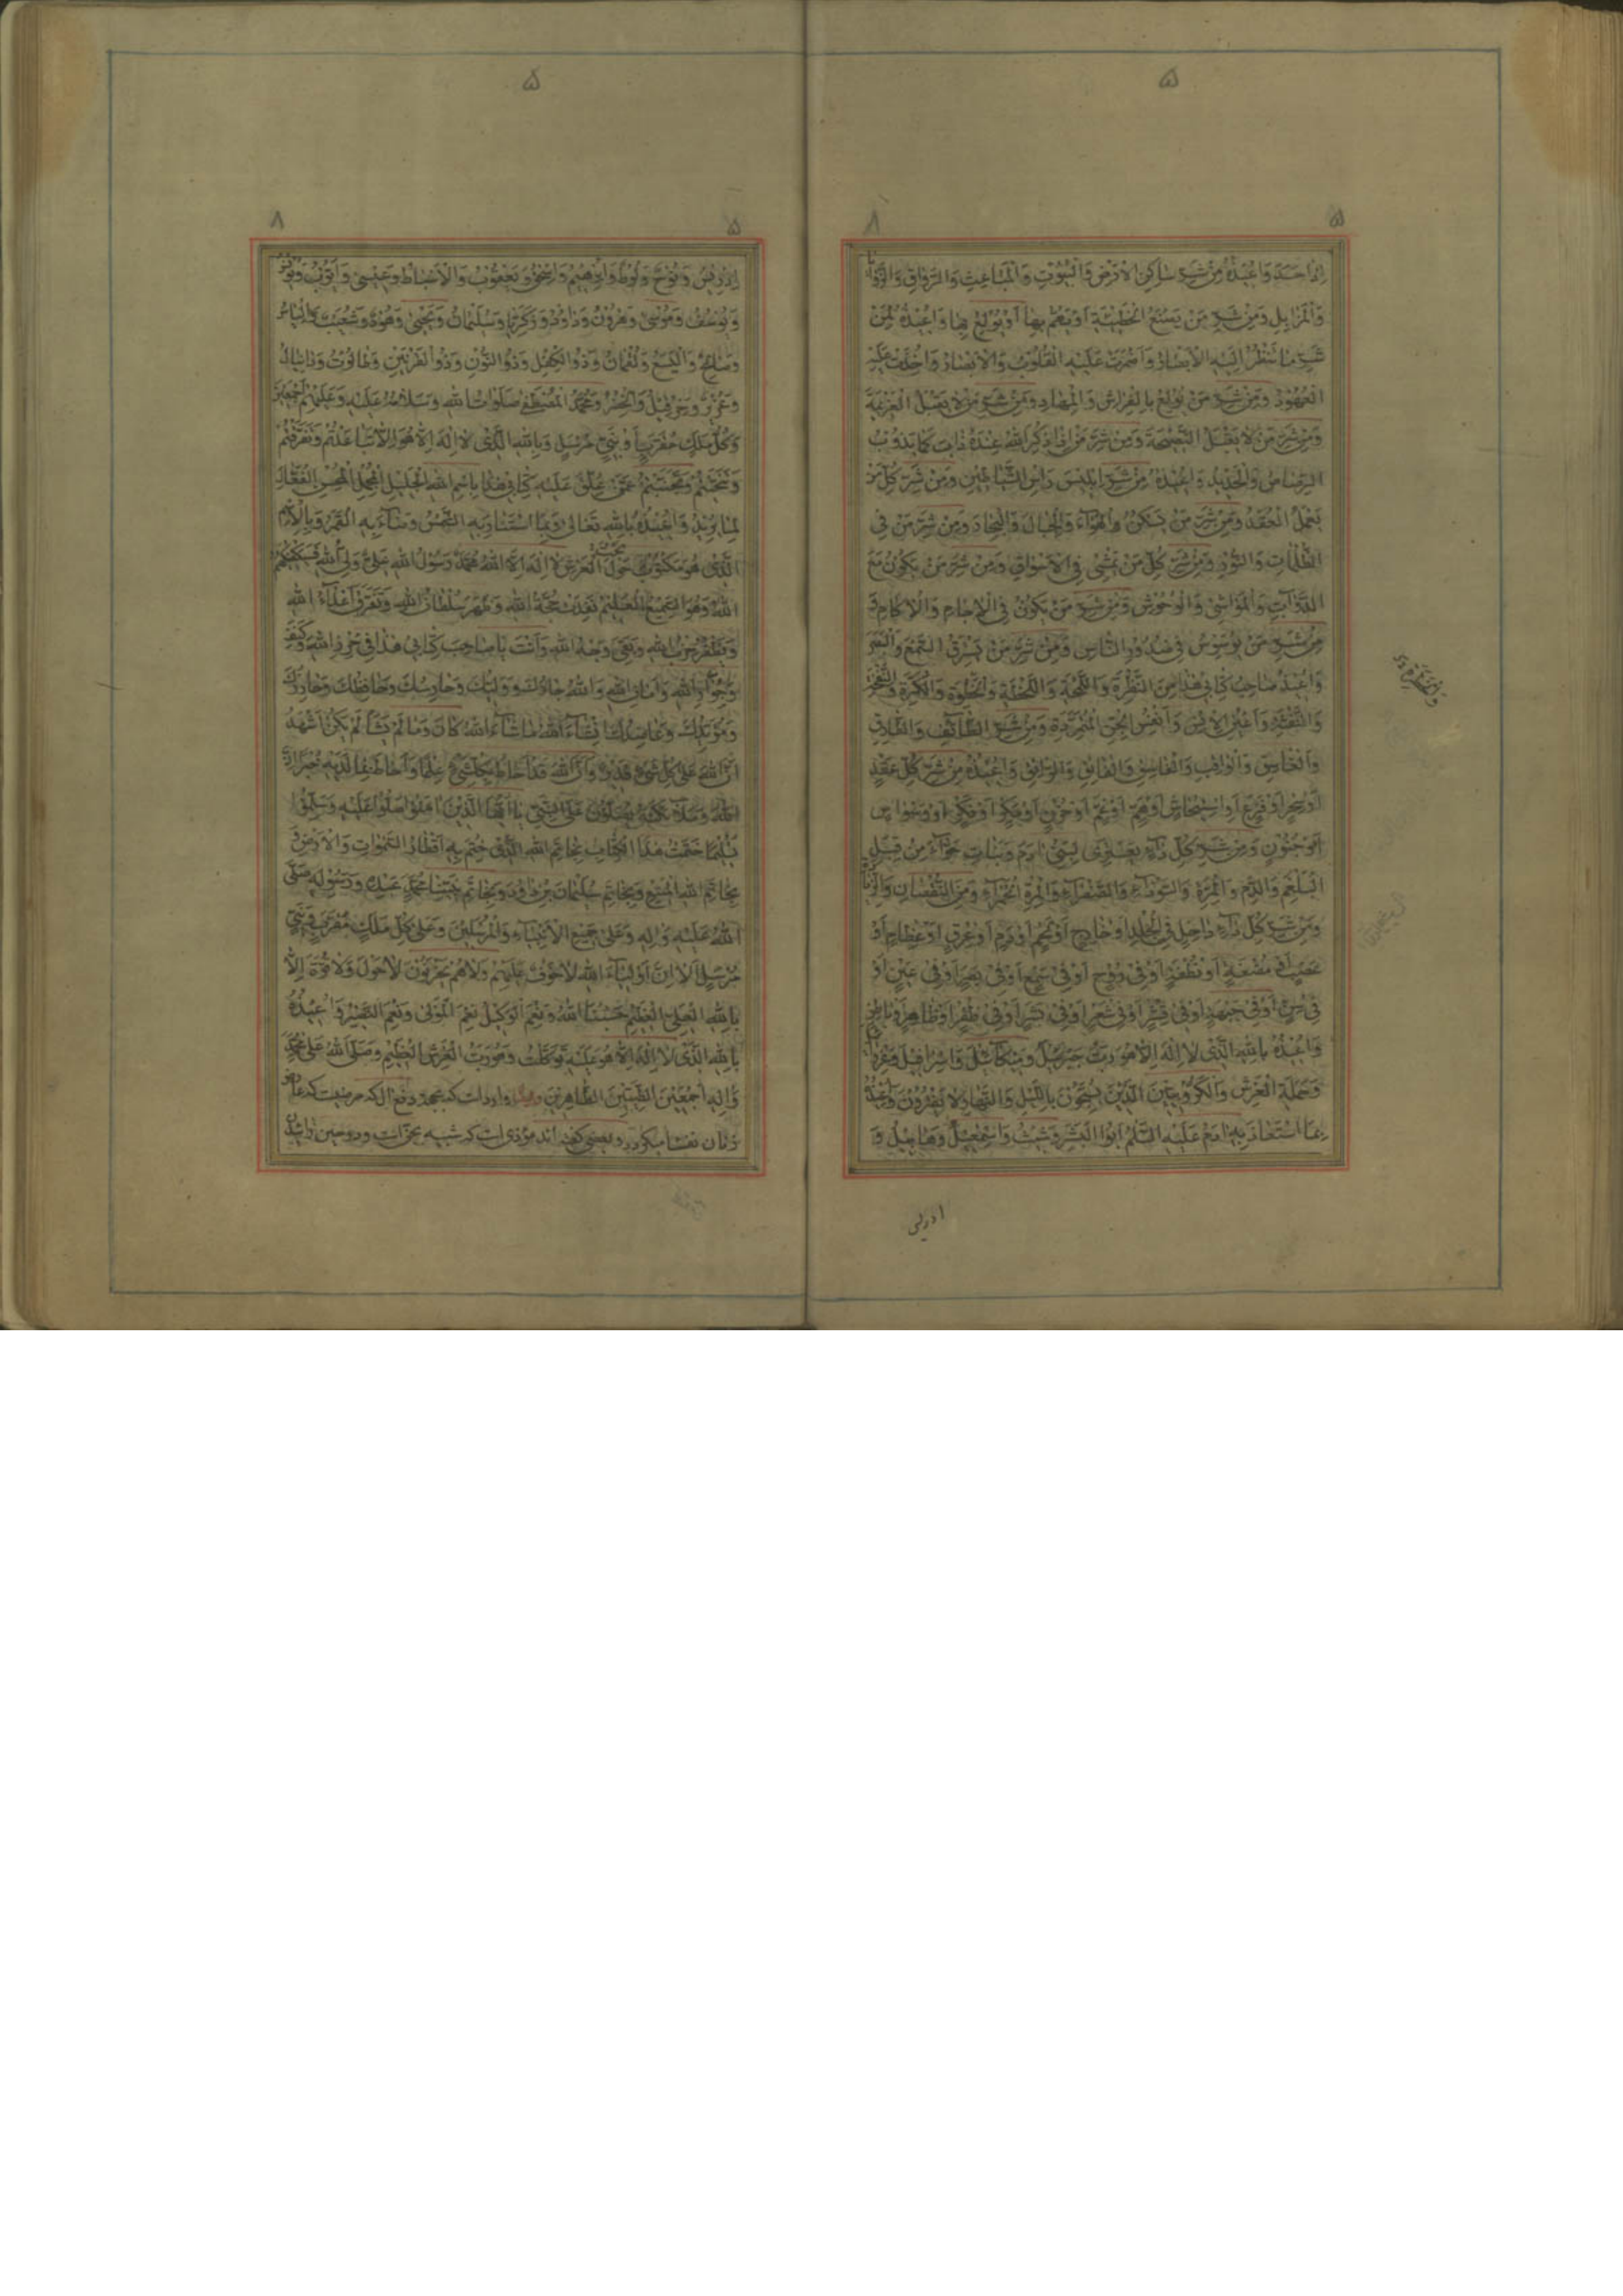 ۵
۸ ۵
اِذَا حَسَدَ وَاُعيذُهُ مِنْ شَرِّ سٰاكِنِ الْاَرْضِ وَالْبُيُوتِ وَالْمَبٰاعِثِ وَالزَّوٰايٰا
وَالْمَزٰابِلِ وَمِنْ شَرِّ مَنْ يَصْنَعُ الْخَطيئَةَ اَوْ يَهُمُّ بِهٰا اَوْ يُولَعُ بِهٰا وَاُعيذُهُ مِنْ
شَرِّ مٰا تَنْظُرُ اِلَيْهِ الْاَبْصٰارُ وَاَضْمَرَتْ عَلَيْهِ الْقُلُوبُ وَالْاَبْصٰارُ وَاُخِذَتْ عَلَيْهِ
الْعُهُودُ وَمِنْ شَرِّ مَنْ يُولَعُ بِالْفِرٰاشِ وَالْمِهٰادِ وَمِنْ شَرِّ مَنْ لٰا يَقْبَلُ الْعَزيمَةَ
وَمِنْ شَرِّ مَنْ لٰا يَقْبَلُ النَّصيحَةَ وَمِنْ شَرِّ مَنْ اِذٰا ذُكِرَ اللهُ عِنْدَهُ ذٰابَ كَمٰا يَذُوبُ
الرَّصٰاصُ وَالْحَديدُ وَاُعيذُهُ مِنْ شَرِّ اِبْليسَ رَأْسِ الشَّيٰاطينِ وَمِنْ شَرِّ كُلِّ مَنْ
يَعْمَلُ الْعُقَدَ وَمِنْ شَرِّ مَنْ يَسْكُنُ الْهَوٰاءَ وَالْجِبٰالَ وَالْبِحٰارَ وَمِنْ شَرِّ مَنْ فِى
الظُّلُمٰاتِ وَالنُّورِ وَمِنْ شَرِّ كُلِّ مَنْ يَمْشى فِى الْاَسْوٰاقِ وَمِنْ شَرِّ مَنْ يَكُونُ مَعَ
الدَّوٰابِّ وَالْمَوٰاشى وَالْوُحُوشِ وَمِنْ شَرِّ مَنْ يَكُونُ فِى الْاَرْحٰامِ وَالْاٰكٰامِ وَ
مِنْ شَرِّ مَنْ يُوَسْوِسُ فى صُدُورِ النّٰاسِ وَمِنْ شَرِّ مَنْ يَسْرَقُ السَّمْعَ وَالْبَصَرَ
وَاُعيذُ صٰاحِبَ كِتٰابى هٰذٰا مِنَ النَّظْرَةِ وَاللَّمْحَةِ وَاللَّحْظَةِ وَالْخَطْوَةِ وَالْكَرَّةِ وَالنَّفْخَةِ
وَاَعْيُنِ الْاِنْسِ وَاَنْفُسِ الْجِنِّ الْمُتَمَرِّدَةِ وَمِنْ شَرِّ الطّٰائِفِ وَالطّٰارِقِ
وَالْغٰاسِقِ وَالْوٰاقِبِ وَاُعيذُهُ مِنْ شَرِّ كُلِّ عُقَدٍ
اَوْ سِحْرٍ اَوْ فَزَعٍ اَوِ اسْتيحٰاشٍ اَوْ هَمٍّ اَوْ غَمٍّ اَوْ حُزْنٍ اَوْ فِكْرٍ اَوْ وَسْوٰاسٍ
اَوْ جُنُونٍ وَمِنْ شَرِّ كُلِّ دٰاءٍ يَعْتَرى لِبَنى اٰدَمَ وَبَنٰاتِ حَوّٰاءَ مِنْ قِبَلِ
الْبَلْغَمِ وَالدَّمِ وَالْمِرَّةِ وَالسَّوْدٰاءِ وَالصَّفْرٰاءِ وَالْمِرَّةِ الْحَمْرٰاءِ وَمِنَ النُّقْصٰانِ وَالزِّيٰادَةِ
وَمِنْ شَرِّ كُلِّ دٰاءٍ دٰاخِلٍ فِى الْجِلْدِ اَوْ خٰارِجٍ اَوْ لَحْمٍ اَوْ دَمٍ اَوْ عِرْقٍ اَوْ عِظٰامٍ اَوْ
عَصَبٍ اَوْ مُضْغَةٍ اَوْ نُطْفَةٍ اَوْ فى رُوحٍ اَوْ فى سَمْعٍ اَوْ فى بَصَرٍ اَوْ فى عَيْنٍ اَوْ
شَعْرٍ اَوْ فى بَشَرٍ اَوْ فى ظُفْرٍ اَوْ ظٰاهِرٍ اَوْ بٰاطِنٍ
وَاُعيذُهُ بِاللهِ الَّذى لٰا اِلٰهَ اِلّٰا هُوَ رَبُّ جَبْرَئيلَ وَميكٰائيلَ وَاِسْرٰافيلَ وَعِزْرٰائيلَ
وَحَمَلَةِ الْعَرْشِ وَالْكَرُّوبِيّينَ الَّذينَ يُسَبِّحُونَ بِاللَّيْلِ وَالنَّهٰارِ لٰا يَفْتُرُونَ وَاُعيذُهُ
بِمَا اسْتَعٰاذَ بِهِ اٰدَمُ عَلَيْهِ السَّلٰمُ اَبُو الْبَشَرِ وَشيثُ وَاِسْمٰعيلُ وَهٰابيلُ وَ
ادریس
۵
۸ ۵
اِدْريسُ وَنُوحٌ وَلُوطٌ وَاِبْرٰهيمُ وَاِسْحٰقُ وَيَعْقُوبُ وَالْاَسْبٰاطُ وَعيسىٰ وَاَيُّوبُ وَيُونُسُ
وَيُوسُفُ وَمُوسىٰ وَهٰرُونُ وَدٰاوُدُ وَزَكَرِيّٰا وَسُلَيْمٰانُ وَيَحْيىٰ وَهُودٌ وَشُعَيْبٌ وَاِلْيٰاسُ
وَصٰالِحٌ وَالْيَسَعُ وَلُقْمٰانُ وَذُو الْكِفْلِ وَذُو النُّونِ وَذُو الْقَرْنَيْنِ وَطٰالُوتُ وَدٰانِيٰالُ
وَعُزَيْرٌ وَحِزْقيلُ وَالْخِضْرُ وَمُحَمَّدٌ الْمُصْطَفىٰ صَلَوٰاتُ اللهِ وَسَلٰامُهُ عَلَيْهِ وَعَلَيْهِمْ اَجْمَعينَ
وَكُلُّ مَلَكٍ مُقَرَّبٍ اَوْ نَبِىٍّ مُرْسَلٍ وَبِاللهِ الَّذى لٰا اِلٰهَ اِلّٰا هُوَ اِلّٰا تَبٰاعَدْتُمْ وَتَفَرَّقْتُمْ
وَتَنَحَّيْتُمْ عَمَّنْ عُلِّقَ عَلَيْهِ كِتٰابى هٰذٰا بِاسْمِ اللهِ الْجَليلِ الْجَميلِ الْمُحْسِنِ الْفَعّٰالِ
لِمٰا يُريدُ وَاُعيذُهُ بِاللهِ تَعٰالىٰ وَبِمَا اسْتَنٰارَ بِهِ الشَّمْسُ وَضٰاءَ بِهِ الْقَمَرُ وَبِالْاِسْمِ
الَّذى هُوَ مَكْتُوبٌ حَوْلَ الْعَرْشِ لٰا اِلٰهَ اِلَّا اللهُ مُحَمَّدٌ رَسُولُ اللهِ عَلِىٌّ وَلِىُّ اللهِ فَسَيَكْفيكَهُمُ
اللهُ وَهُوَ السَّميعُ الْعَليمُ نَفَذَتْ حُجَّةُ اللهِ وَظَهَرَ سُلْطٰانُ اللهِ وَتَفَرَّقَ اَعْدٰاءُ اللهِ
وَبَقِىَ وَجْهُ اللهِ وَاَنْتَ يٰا صٰاحِبَ كِتٰابى هٰذٰا فى حِرْزِ اللهِ وَكَنَفِ
وَجِوٰارِ اللهِ وَاَمٰانِ اللهِ وَاللهُ جٰارُكَ وَوَلِيُّكَ وَحٰارِسُكَ وَحٰافِظُكَ
مٰا شٰاءَ اللهُ كٰانَ وَمٰا لَمْ يَشَأْ لَمْ يَكُنْ اَشْهَدُ
اَنَّ اللهَ عَلىٰ كُلِّ شَىْءٍ قَديرٌ وَاَنَّ اللهَ قَدْ اَحٰاطَ بِكُلِّ شَىْءٍ عِلْمًا وَاَحٰاطَ بِمٰا لَدَيْهِ خُبْرًا اِنَّ
اللهَ وَمَلٰائِكَتَهُ يُصَلُّونَ عَلَى النَّبِىِّ يٰا اَيُّهَا الَّذينَ اٰمَنُوا صَلُّوا عَلَيْهِ وَسَلِّمُوا
تَسْليمًا خَتَمْتُ هٰذَا الْكِتٰابَ بِخٰاتَمِ اللهِ الَّذى خَتَمَ بِهِ اَقْطٰارَ السَّمٰوٰاتِ وَالْاَرَضينَ
بِخٰاتَمِ اللهِ الْمَنيعِ وَبِخٰاتَمِ سُلَيْمٰانَ بْنِ دٰاوُدَ وَبِخٰاتَمِ نَبِيِّنٰا مُحَمَّدٍ عَبْدِهِ وَرَسُولِهِ صَلَّى
اللهُ عَلَيْهِ وَاٰلِهِ وَعَلىٰ جَميعِ الْاَنْبِيٰاءِ وَالْمُرْسَلينَ وَعَلىٰ كُلِّ مَلَكٍ مُقَرَّبٍ وَنَبِىٍّ
مُرْسَلٍ اَلٰا اِنَّ اَوْلِيٰاءَ اللهِ لٰا خَوْفٌ عَلَيْهِمْ وَلٰا هُمْ يَحْزَنُونَ لٰا حَوْلَ وَلٰا قُوَّةَ اِلّٰا
بِاللهِ الْعَلِىِّ الْعَظيمِ حَسْبُنَا اللهُ وَنِعْمَ الْوَكيلُ نِعْمَ الْمَوْلىٰ وَنِعْمَ النَّصيرُ وَاُعيذُهُ
بِاللهِ الَّذى لٰا اِلٰهَ اِلّٰا هُوَ عَلَيْهِ تَوَكَّلْتُ وَهُوَ رَبُّ الْعَرْشِ الْعَظيمِ وَصَلَّى اللهُ عَلىٰ مُحَمَّدٍ
وَاٰلِهِ اَجْمَعينَ الطَّيِّبينَ الطّٰاهِرينَ وارد است که بجهة دفع ال که مرضیست که
زنان نفسا میگیرد و بعضی گفته اند موذی است که شبیه